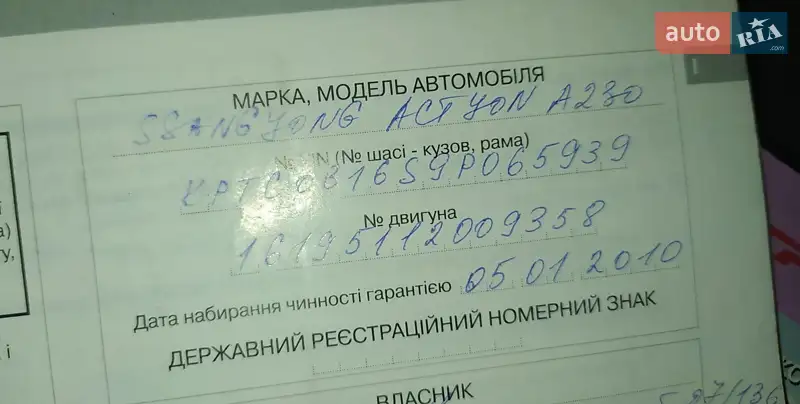 auto RIA .com
МАРКА, МОДЕЛЬ АВТОМОБІЛЯ
SSANGYONG ACTYON A230
№ VIN (№ шасі - кузов, рама)
KPTC0B16S9P065939
№ двигуна
16195112009358
Дата набирання чинності гарантією 05 01 2010
ДЕРЖАВНИЙ РЕЄСТРАЦІЙНИЙ НОМЕРНИЙ ЗНАК
ВЛАСНИК